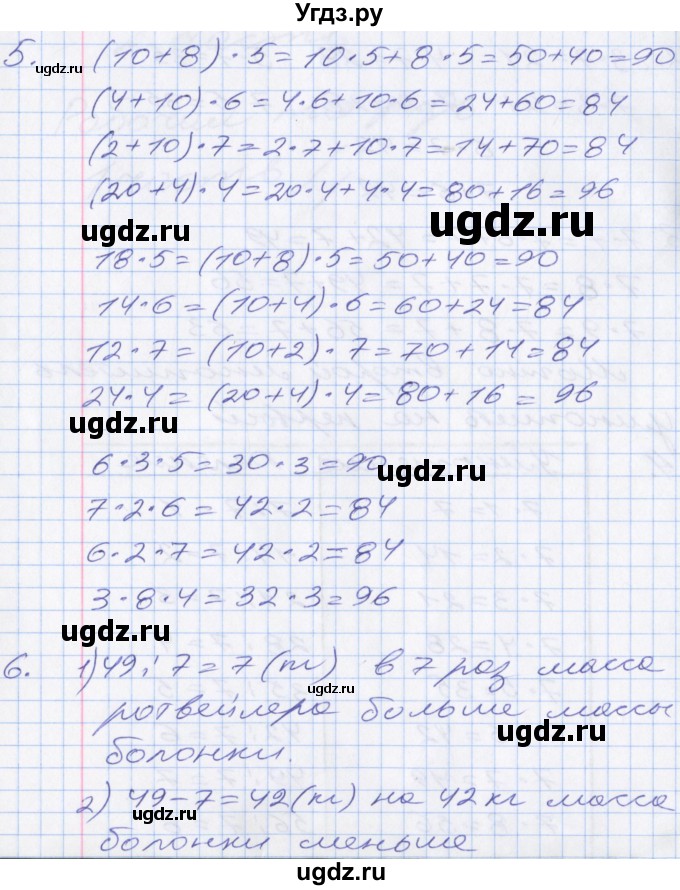 Угдз.ру
5. (10+8)·5=10·5+8·5=50+40=90
ugdz.ru
(4+10)·6=4·6+10·6=24+60=84
(2+10)·7=2·7+10·7=14+70=84
(20+4)·4=20·4+4·4=80+16=96
ugdz.ru ugdz.ru
18·5=(10+8)·5=50+40=90
14·6=(10+4)·6=60+24=84
12·7=(10+2)·7=70+14=84
ugdz.ru
24·4=(20+4)·4=80+16=96
ugdz.ru
6·3·5=30·3=90
ugdz.ru
7·2·6=42·2=84
6·2·7=42·2=84
3·8·4=32·3=96
ugdz.ru
6. 1)49:7=7(кг) в 7 раз масса
ugdz.ru
ротвейлера больше массы
ugdz.ru
болонки.
2) 49-7=42(кг) на 42кг масса
ugdz.ru
болонки меньше
ugdz.ru